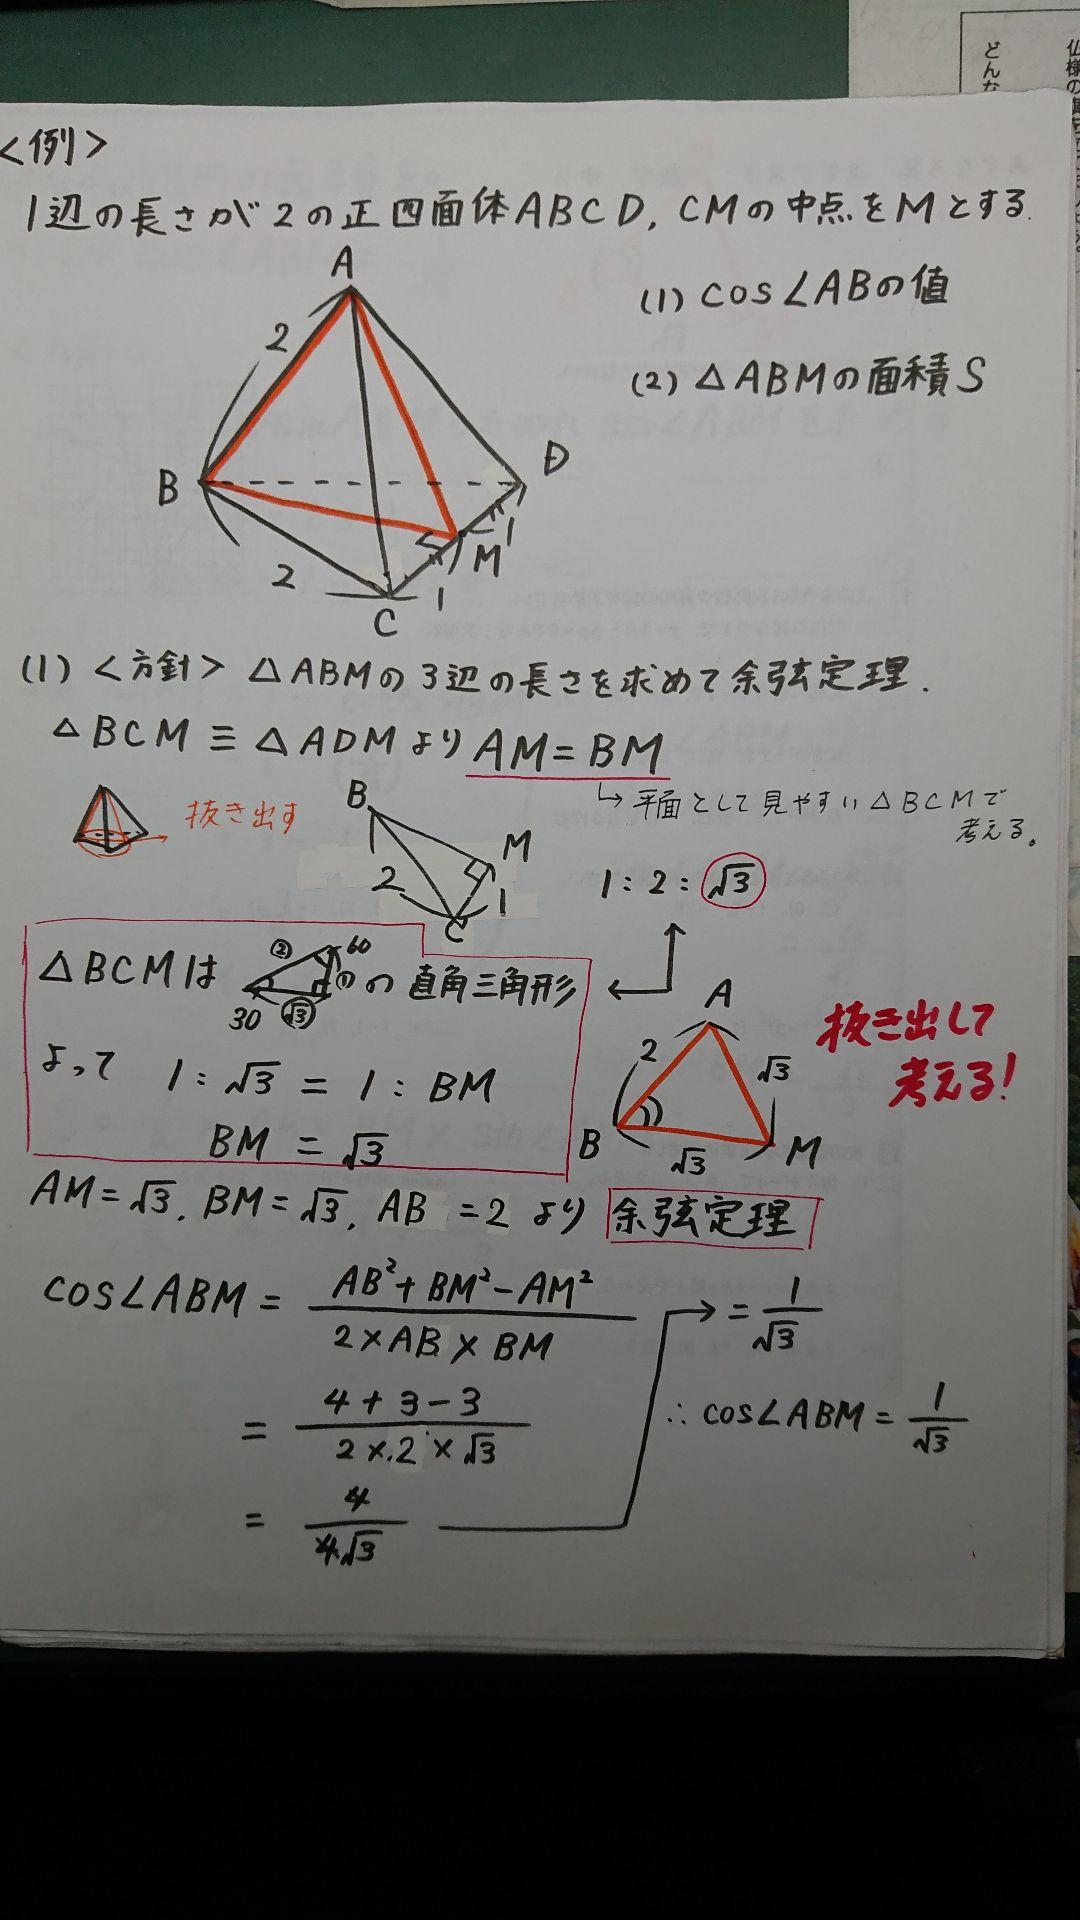 どんな
<例>
1辺の長さが2の正四面体ABCD, CMの中点をMとする.
(1) cos∠ABの値
(2) △ABMの面積S
A
2
B
D
1
M
2
1
C
(1) <方針> △ABMの3辺の長さを求めて余弦定理.
△BCM≡△ADMより AM=BM
↳平面として見やすい△BCMで
考える。
抜き出す
B
M
2
1
C
1:2:√3
△BCMは ② 60 ① 30 √3 の直角三角形
よって 1:√3=1:BM
BM=√3
A
2
√3
B
√3
M
抜き出して
考える!
AM=√3, BM=√3, AB=2より 余弦定理
cos∠ABM = AB²+BM²-AM² / 2×AB×BM
= 4+3-3 / 2×2×√3
= 4 / 4√3
→ = 1/√3
∴ cos∠ABM = 1/√3